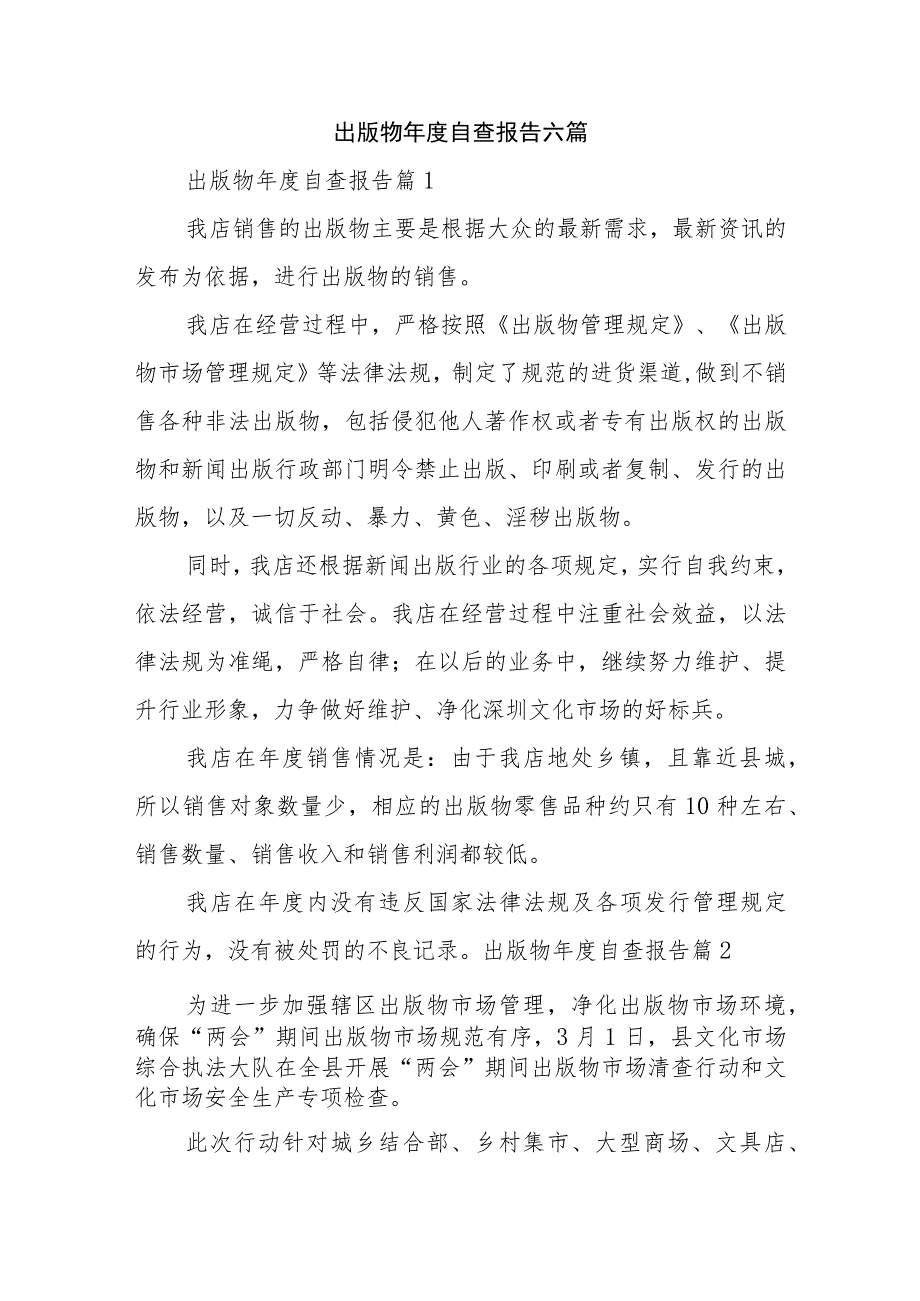 出版物年度自查报告六篇
出版物年度自查报告篇 1
我店销售的出版物主要是根据大众的最新需求，最新资讯的
发布为依据，进行出版物的销售。
我店在经营过程中，严格按照《出版物管理规定》、《出版
物市场管理规定》等法律法规，制定了规范的进货渠道,做到不销
售各种非法出版物，包括侵犯他人著作权或者专有出版权的出版
物和新闻出版行政部门明令禁止出版、印刷或者复制、发行的出
版物，以及一切反动、暴力、黄色、淫秽出版物。
同时，我店还根据新闻出版行业的各项规定，实行自我约束，
依法经营，诚信于社会。我店在经营过程中注重社会效益，以法
律法规为准绳，严格自律；在以后的业务中，继续努力维护、提
升行业形象，力争做好维护、净化深圳文化市场的好标兵。
我店在年度销售情况是：由于我店地处乡镇，且靠近县城，
所以销售对象数量少，相应的出版物零售品种约只有 10 种左右、
销售数量、销售收入和销售利润都较低。
我店在年度内没有违反国家法律法规及各项发行管理规定
的行为，没有被处罚的不良记录。出版物年度自查报告篇 2
为进一步加强辖区出版物市场管理，净化出版物市场环境，
确保“两会”期间出版物市场规范有序，3 月 1 日，县文化市场
综合执法大队在全县开展“两会”期间出版物市场清查行动和文
化市场安全生产专项检查。
此次行动针对城乡结合部、乡村集市、大型商场、文具店、